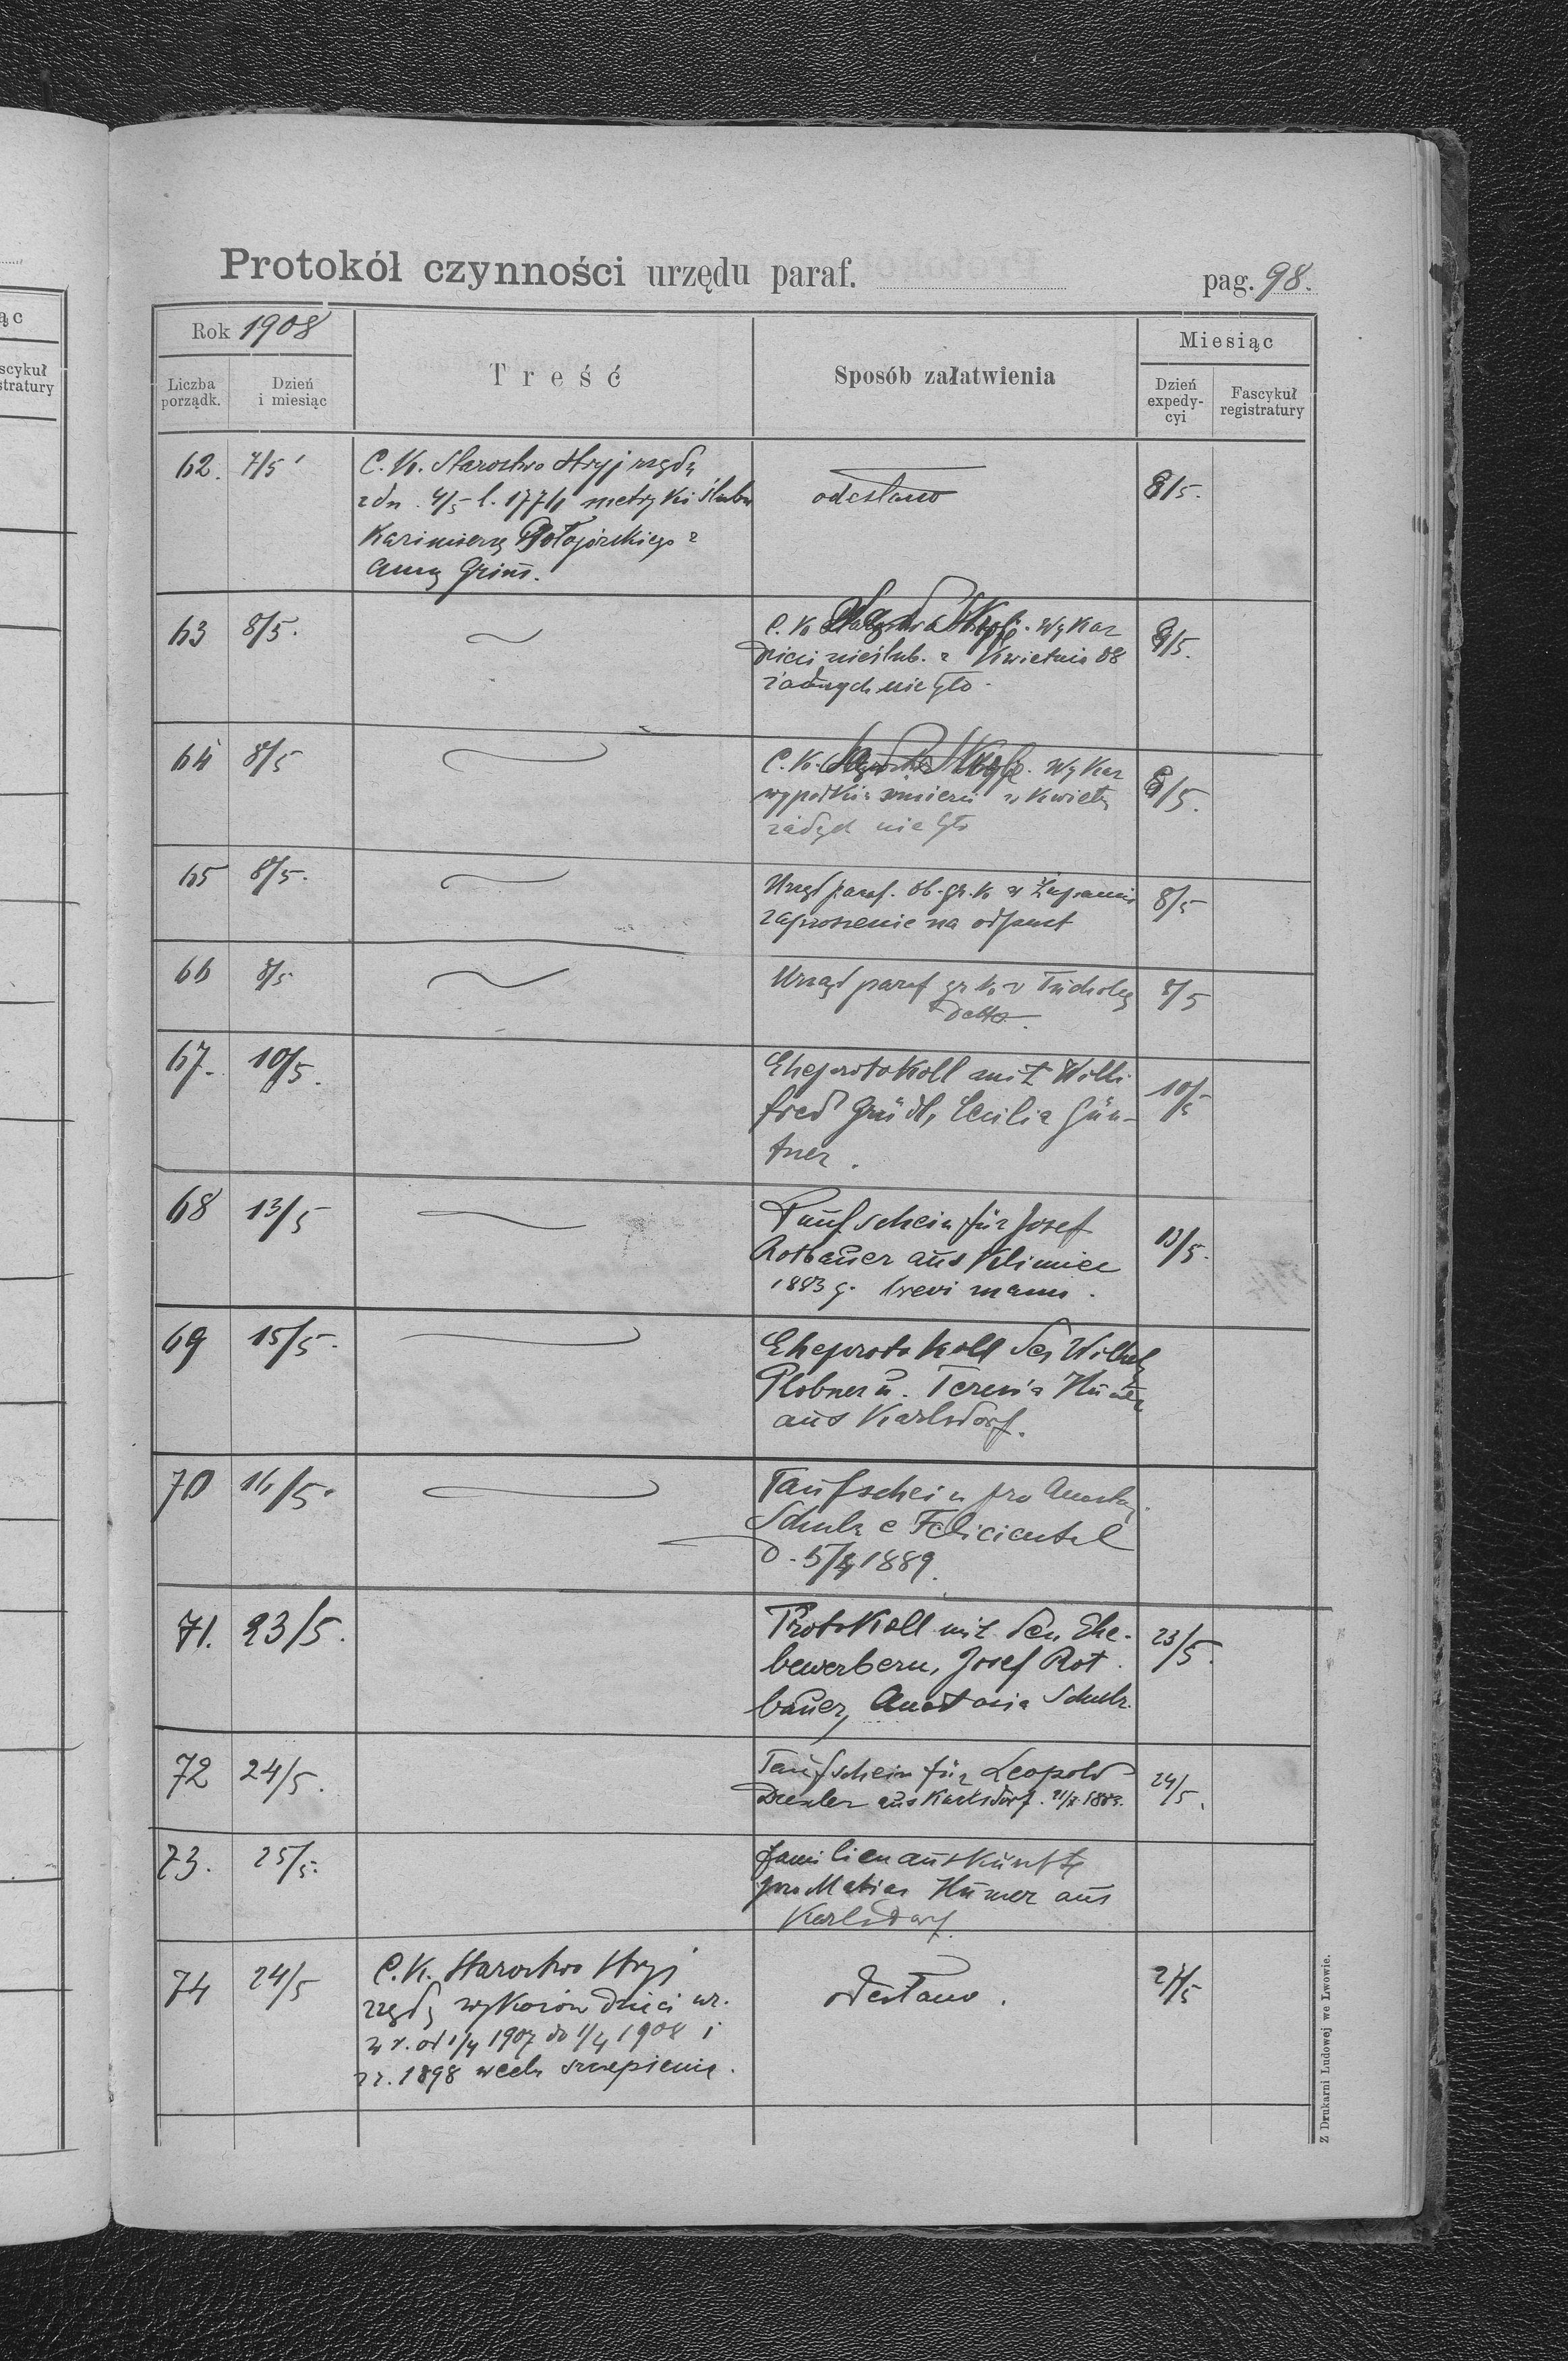 ąc
scykuł
stratury
Protokół czynności urzędu paraf.
pag. 98.
Rok 1908
Liczba porządk.
Dzień i miesiąc
Treść
Sposób załatwienia
Miesiąc
Dzień expedy-cyi
Fascykuł registratury
62. 7/5
C. K. Starostwo Stryj żąda
z dn. 4/5 l. 17711 metryki ślubu
Kazimierza
Anną Grins.
odesłano
8/5.
63 8/5.
C. K. Wykaz
dzieci nieślub. z Kwietnia 08
żadnych nie było.
8/5.
64 8/5
C. K. Wykaz
wypadków śmierci z Kwietn.
nie było
8/5.
65 8/5.
Urząd paraf. ob. gr. k. w
zaproszenie na odpust
8/5
66 8/5
Urząd paraf gr. k. w Tucholce
detto.
8/5
67. 10/5.
Eheprotokoll mit Willi
fried Gründl, Cecilia Gün-
tner.
10/5
68 13/5
Taufschein für Josef
Rotbauer aus Klimiec
1883 g. brevi manu.
13/5.
69 15/5.
Eheprotokoll des Wilhelm
Plobner u. Teresia
aus Karlsdorf.
70 16/5.
Taufschein pro Anastas.
Schulz e Felicienthal
d. 5/4 1889.
71. 23/5.
Protokoll mit den Ehe-
bewerbern, Josef Rot
bauer, Anastasia Schulz.
23/5.
72 24/5.
Taufschein für Leopold
Drexler aus Karlsdorf. 1883.
24/5.
73. 25/5.
Familienauskünfte
pro Matias Humer aus
Karlsdorf.
74 24/5
C. K. Starostwo Stryj
żąda wykazów dzieci ur.
w r. od 1/4 1907 do 1/4 1908 i
z r. 1898 w celu szczepienia.
Odesłano.
27/5
Z Drukarni Ludowej we Lwowie.